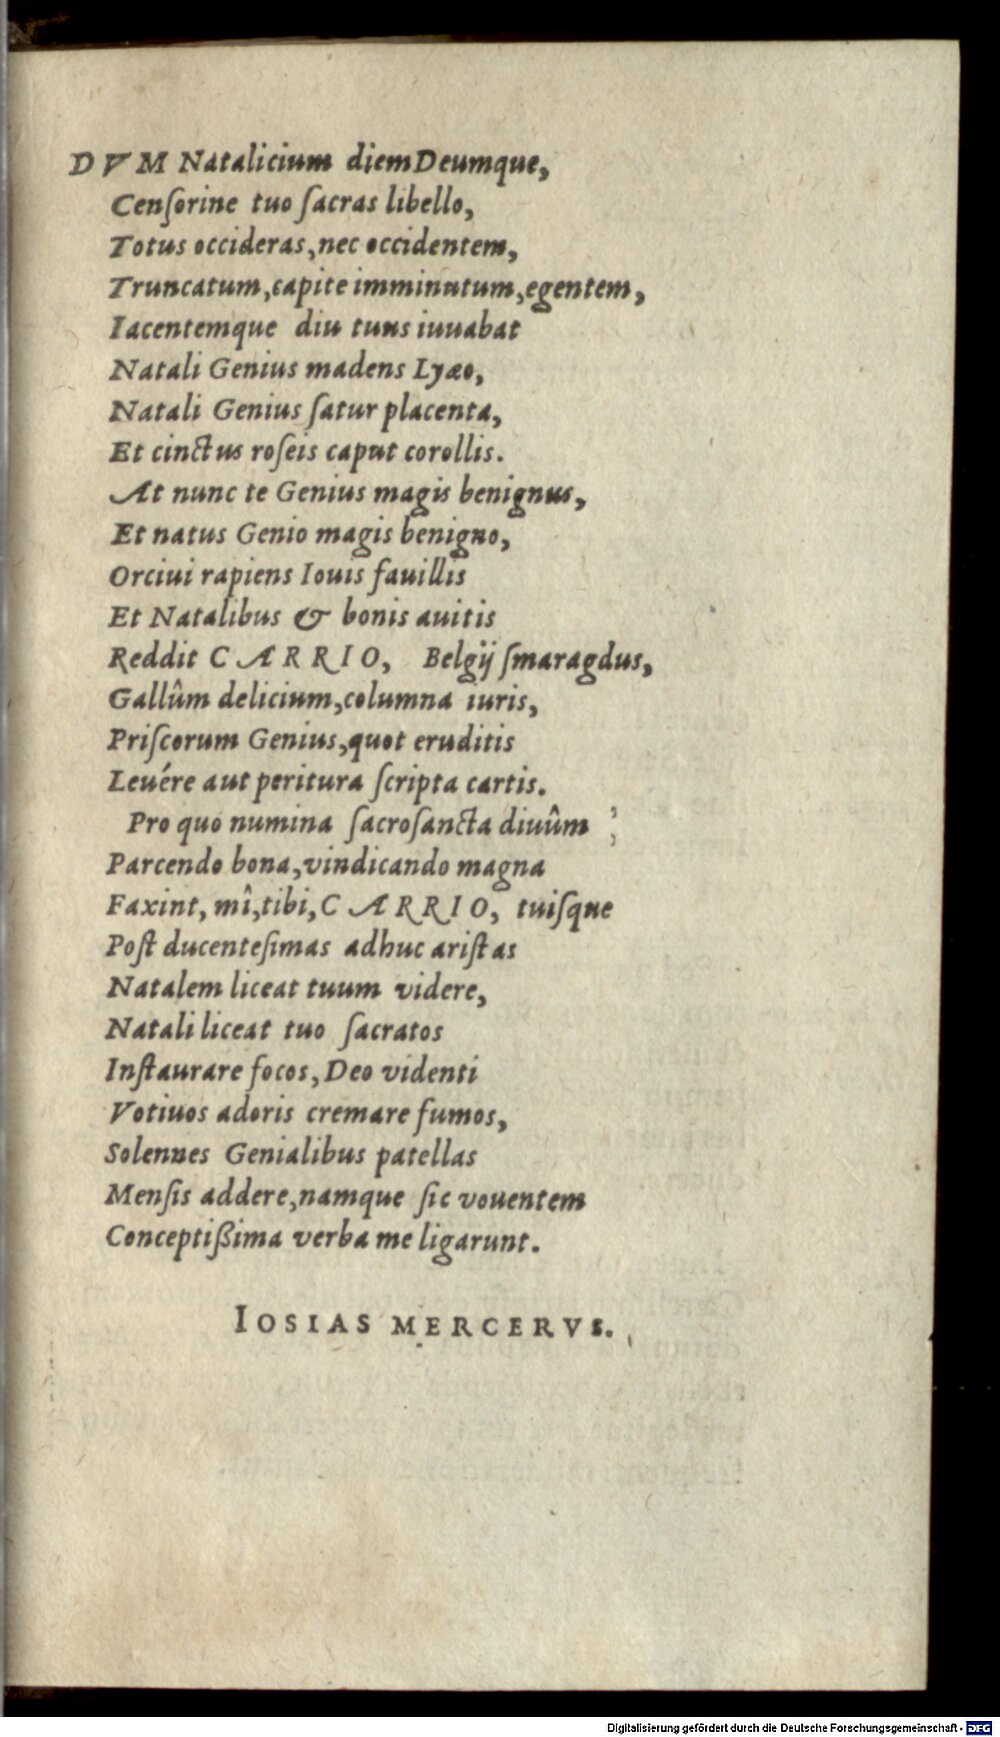 DVM Natalicium diem Deumque,
Cenſorine tuo ſacras libello,
Totus occideras, nec occidentem,
Truncatum, capite imminutum, egentem,
Iacentemque diu tuus iuuabat
Natali Genius madens Lyæo,
Natali Genius ſatur placenta,
Et cinctus roſeis caput corollis.
At nunc te Genius magis benignus,
Et natus Genio magis benigno,
Orciui rapiens Iouis fauillis
Et Natalibus & bonis auitis
Reddit CARRIO, Belgij ſmaragdus,
Gallûm delicium, columna iuris,
Priſcorum Genius, quot eruditis
Leuére aut peritura ſcripta cartis.
Pro quo numina ſacroſancta diuûm ;
Parcendo bona, vindicando magna
Faxint, mî, tibi, CARRIO, tuiſque
Poſt ducenteſimas adhuc ariſtas
Natalem liceat tuum videre,
Natali liceat tuo ſacratos
Inſtaurare focos, Deo videnti
Votiuos adoris cremare fumos,
Solennes Genialibus patellas
Menſis addere, namque ſic vouentem
Conceptißima verba me ligarunt.
IOSIAS MERCERVS.
Digitalisierung gefördert durch die Deutsche Forschungsgemeinschaft - DFG